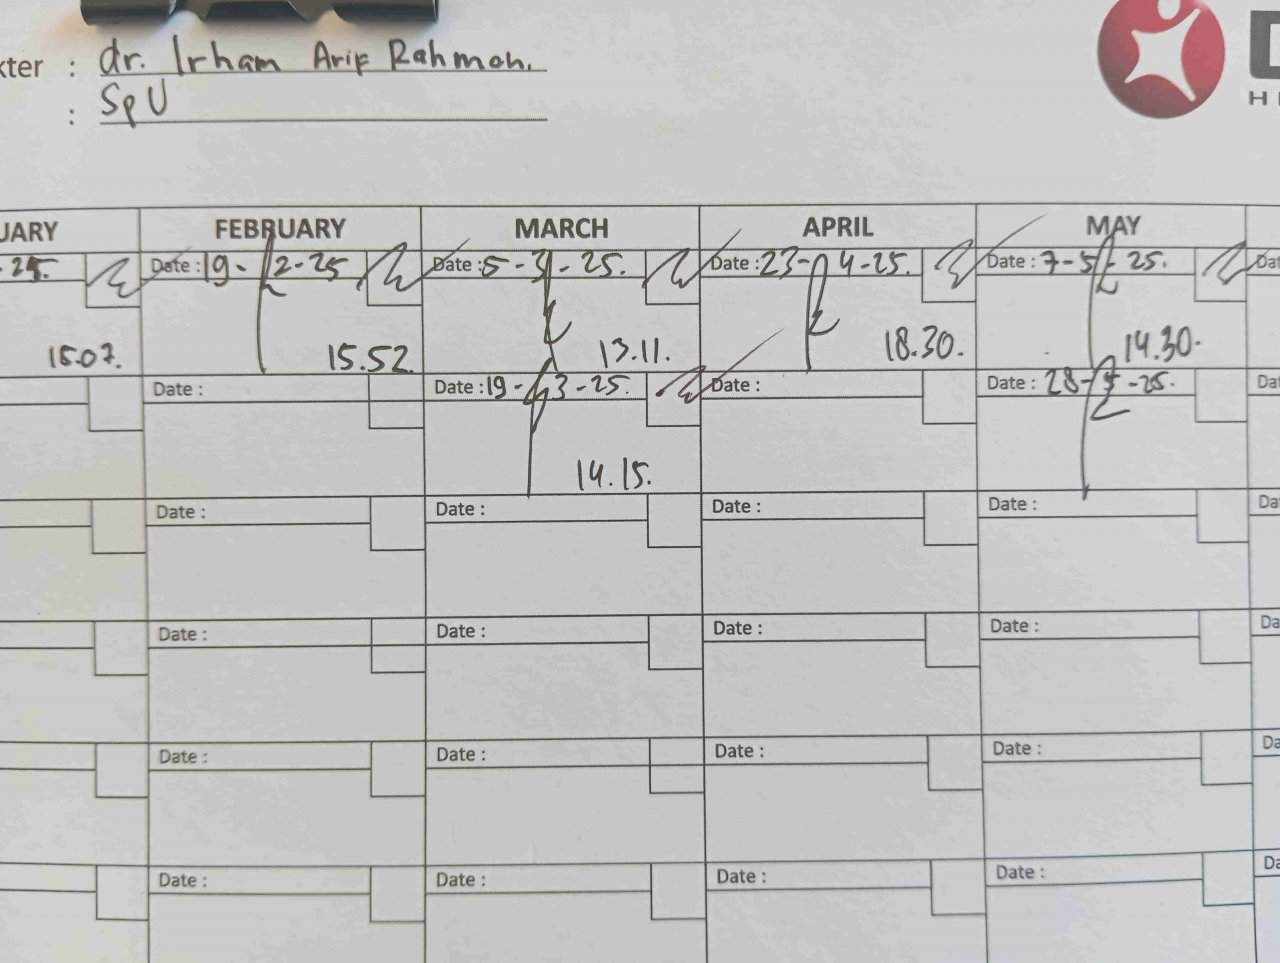 kter : dr. Irham Arif Rahman.
: SpU
D
H
UARY FEBRUARY MARCH APRIL MAY
25. Date : 19-2-25 Date : 5-3-25. Date : 23-4-25. Date : 7-5-25. Dat
15.07. 15.52. 13.11. 18.30. 14.30.
Date : Date : 19-3-25. Date : Date : 28-5-25. Dat
14.15.
Date : Date : Date : Date : Da
Date : Date : Date : Date : Da
Date : Date : Date : Date : Da
Date : Date : Date : Date : Da